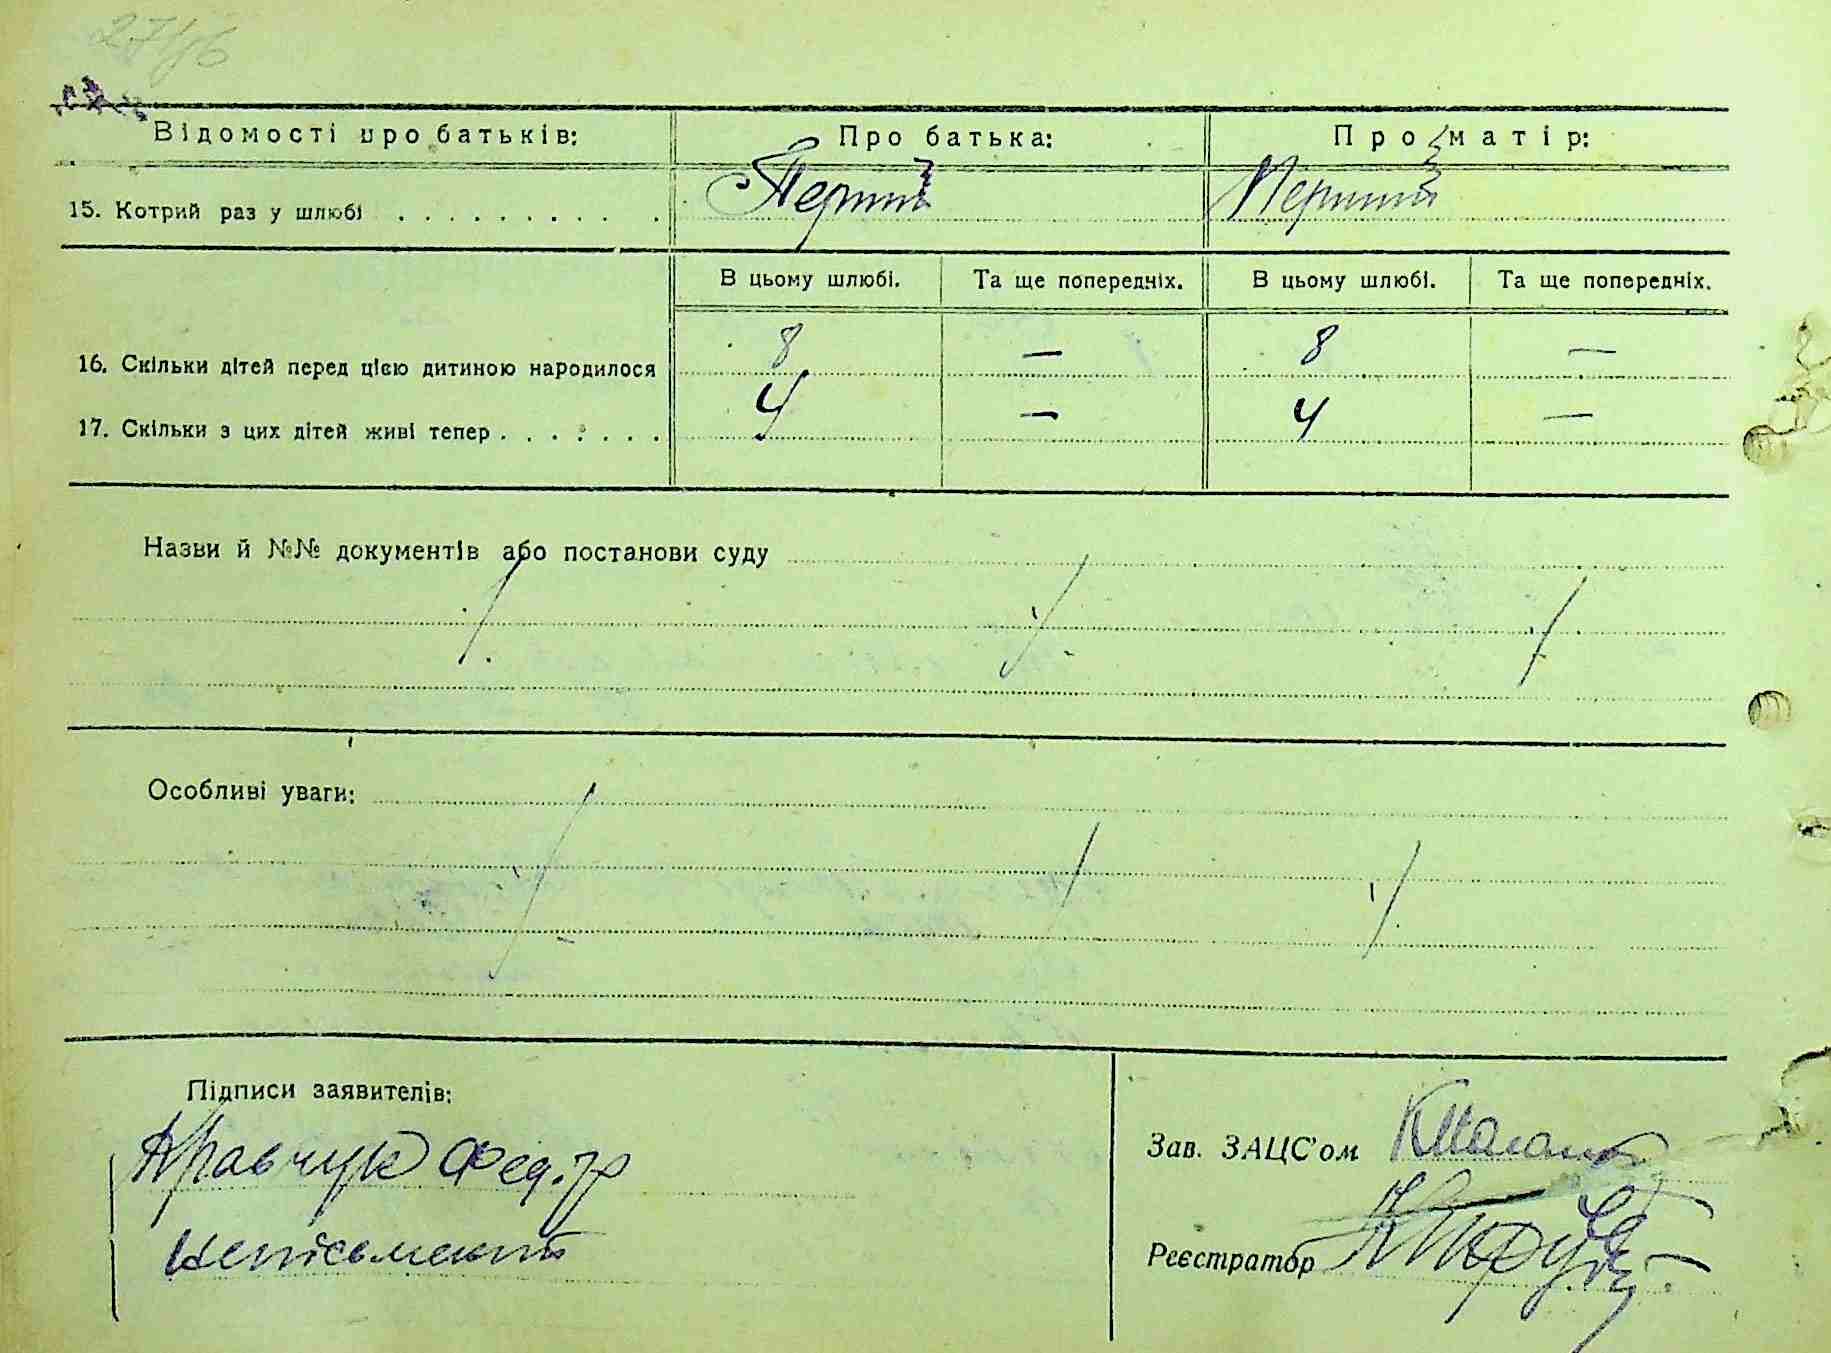 Відомості про батьків: Про батька: Про матір:
15. Котрий раз у шлюбі . . . . . . . . . . Перший Перший
В цьому шлюбі. Та ще попередніх. В цьому шлюбі. Та ще попередніх.
16. Скільки дітей перед цією дитиною народилося 8 — 8 —
17. Скільки з цих дітей живі тепер . . . . . . . 4 — 4 —
Назви й №№ документів або постанови суду
Особливі уваги:
Підписи заявителів:
Кравчук Фед.
Зав. ЗАЦС'ом
Реєстратор